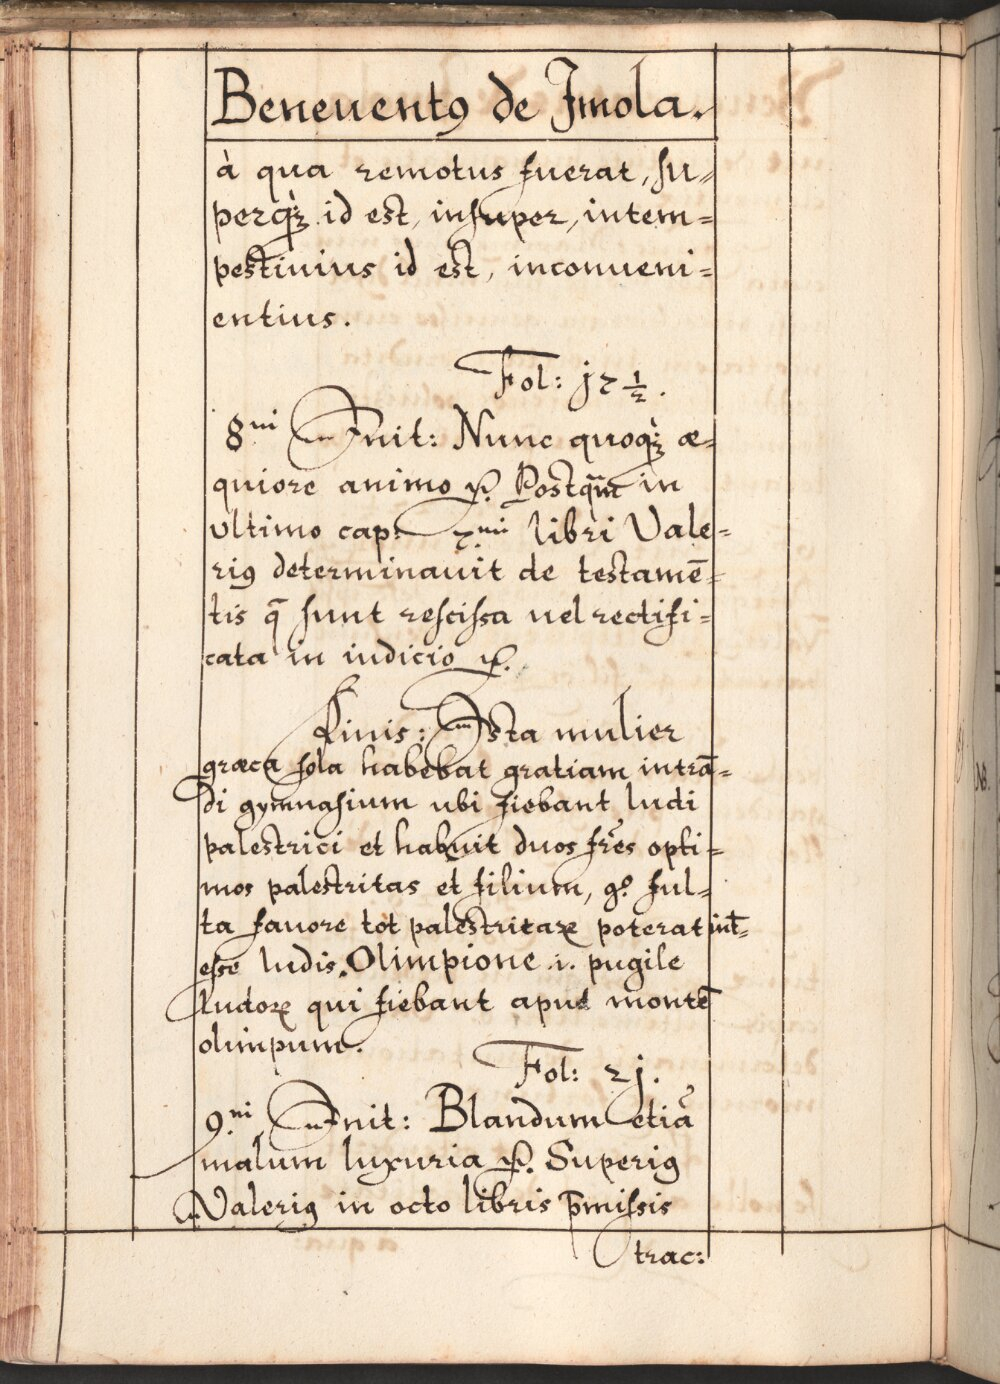 Beneuentꝰ de Imola.
à qua remotus fuerat, su=
perqꝫ id est, insuper, intem=
pestiuius id est, inconueni=
entius.
Fol: 17 ½.
8ui Init: Nunc quoqꝫ æ=
quiore animo ꝛc. Postqm̃ in
vltimo cap: 7mi libri Vale=
riꝰ determinauit de testamē=
tis q̄ sunt rescissa uel rectifi=
cata in iudicio ꝛc.
Finis: Ista mulier
græca sola habebat gratiam intrā=
di gymnasium ubi fiebant ludi
palestrici et habuit duos fres opti=
mos palestritas et filium, gº. ful=
ta fauore tot palestritaꝝ poterat int̄=
esse ludis. Olimpione .i. pugile
ludoꝝ qui fiebant apud montē
olimpum.
Fol: 21.
9.ni Init: Blandum etiā
malum luxuria ꝛc. Superiꝰ
Valeriꝰ in octo libris p̄missis
trac:
N8.